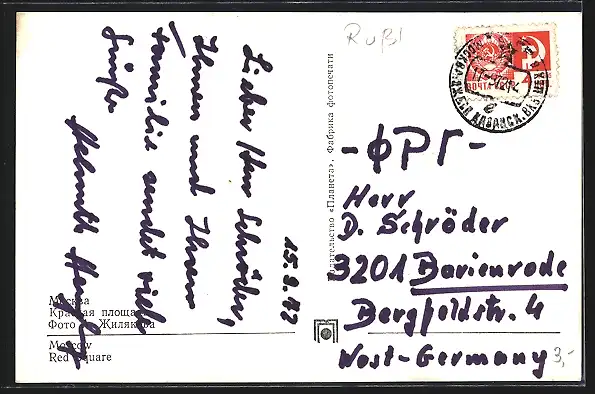 Lieber Herr Schröder,
Ihnen und Ihrer
Familie sendet viele
Grüße
Helmuth
15.9.72
Москва
Красная площадь
Фото Жилякова
Moscow
Red Square
Издательство «Планета», Фабрика фотопечати
Rußl
ПОЧТА
-ФРГ-
Herr
D. Schröder
3201 Barienrode
Bergfeldstr. 4
West-Germany
3,-